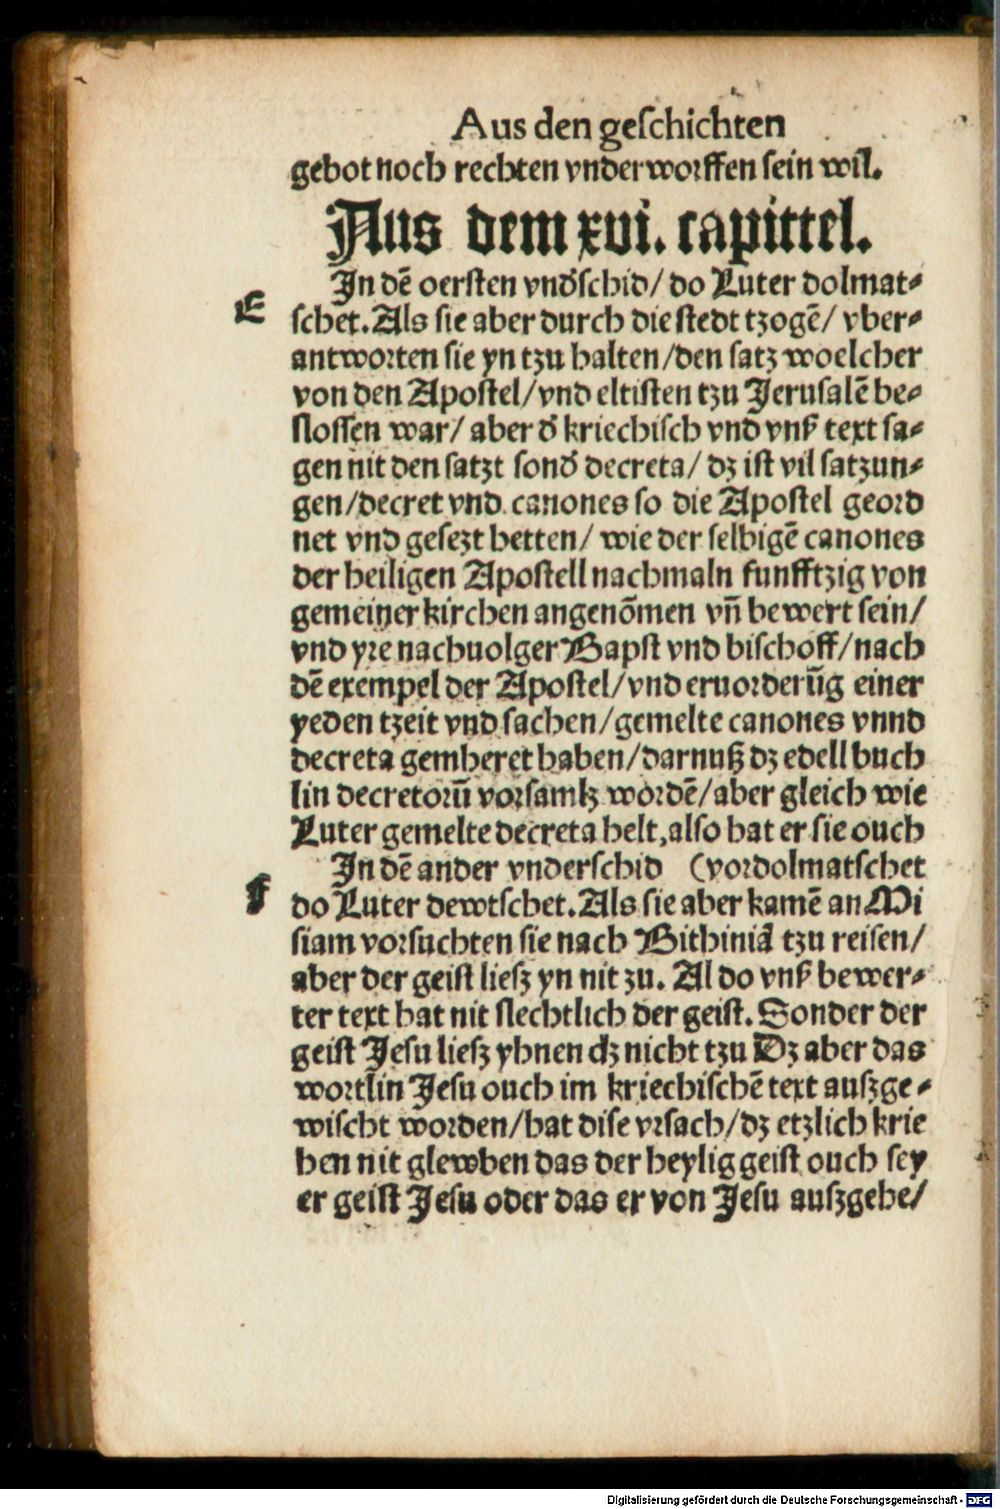 Aus den geſchichten
gebot noch rechten vnderworffen ſein wil.
Aus dem xvi. capittel.
In dē oerſten vndſchid/ do Luter dolmat⸗
E ſchet. Als ſie aber durch die ſtedt tzogē/ vber⸗
antworten ſie yn tzu halten/den ſatz woelcher
von den Apoſtel/vnd eltiſten tzu Jeruſalē be⸗
ſloſſen war/ aber d' kriechiſch vnd vnſ' text ſa⸗
gen nit den ſatzt ſond' decreta/ dz iſt vil ſatzun⸗
gen/decret vnd canones ſo die Apoſtel geord
net vnd geſezt hetten/ wie der ſelbigē canones
der heiligen Apoſtell nachmaln funfftzig von
gemeiner kirchen angenōmen vn̄ bewert ſein/
vnd yre nachuolger Bapſt vnd biſchoff/nach
dē exempel der Apoſtel/vnd eruorderūg einer
yeden tzeit vnd ſachen/gemelte canones vnnd
decreta gemheret haben/darnuß dz edell buch
lin decretorū vorſamlz wordē/aber gleich wie
Luter gemelte decreta helt,alſo hat er ſie ouch
In dē ander vnderſchid (vordolmatſchet
F do Luter dewtſchet. Als ſie aber kamē an Mi
ſiam vorſuchten ſie nach Bithiniā tzu reiſen/
aber der geiſt lieſz yn nit zu. Al do vnſ' bewer⸗
ter text hat nit ſlechtlich der geiſt. Sonder der
geiſt Jeſu lieſz yhnen dz nicht tzu Dz aber das
wortlin Jeſu ouch im kriechiſchē text auſzge⸗
wiſcht worden/hat diſe vrſach/dz etzlich krie
hen nit glewben das der heylig geiſt ouch ſey
er geiſt Jeſu oder das er von Jeſu auſzgehe/
Digitalisierung gefördert durch die Deutsche Forschungsgemeinschaft - DFG